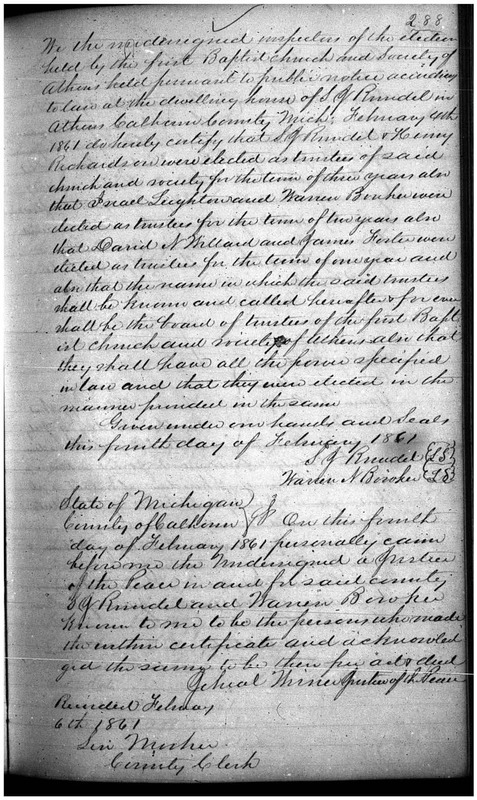 288
We the undersigned inspectors of the election
held by the first Baptist church and Society of
Athens held pursuant to public notice according
to law at the dwelling house of S J Rundel in
Athens Calhoun County Mich. February 4th
1861 do hereby certify that S J Rundel & Henry
Richardson were elected as trustees of said
church and society for the term of three years also
that Israel Leighton and Warren Bowker were
elected as trustees for the term of two years also
that David N Willard and James Foster were
elected as trustees for the term of one year and
also that the name in which the said trustees
shall be known and called hereafter & for ever
shall be the board of trustees of the first Bapt
ist church and society of Athens also that
they shall have all the power specified
in law and that they were elected in the
manner provided in the same
Given under our hands and Seals
this fourth day of February 1861
S J Rundel LS
Warren N Bowker LS
State of Michigan
County of Calhoun } SS On this fourth
day of February 1861 personally came
before me the Undersigned a Justice
of the Peace in and for said county
S J Rundel and Warren Bowker
known to me to be the persons who made
the within certificate and acknowled
ged the same to be their free act & deed
Justice of the Peace
Recorded February
6th 1861
Mosher
County Clerk